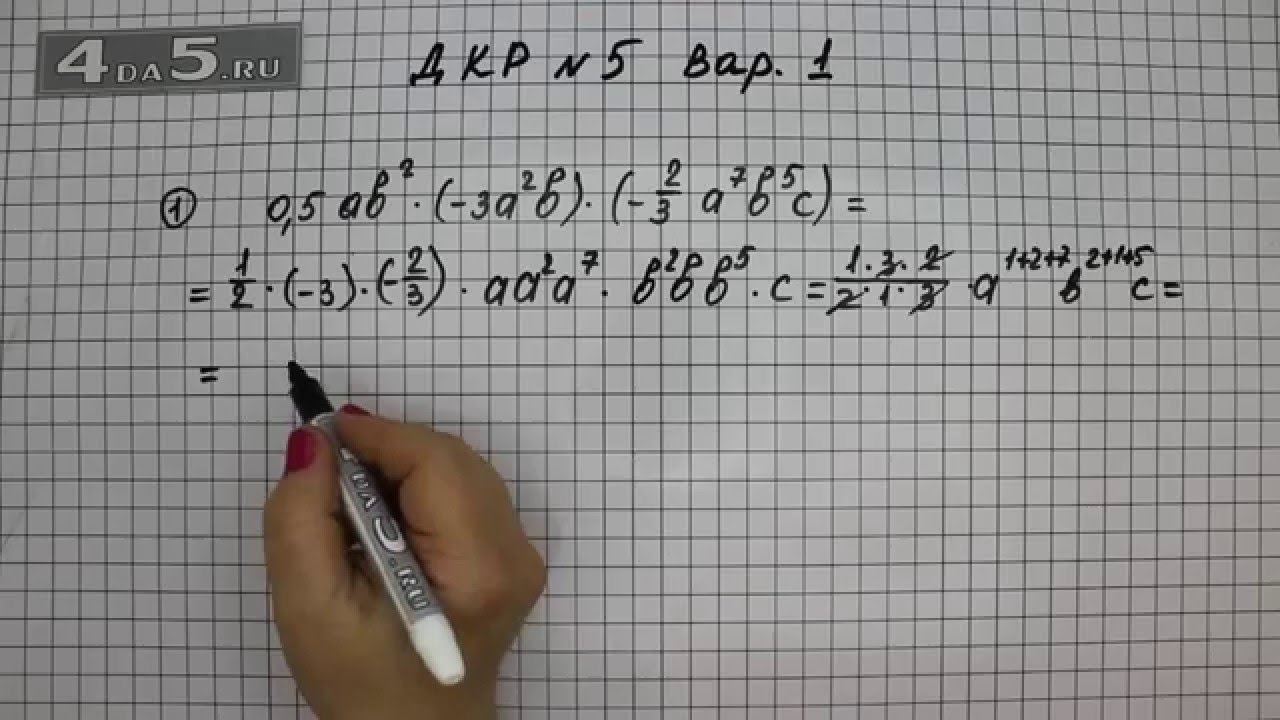 4DA5.RU
ДКР №5 Вар. 1
① 0,5 ab² · (-3a²b) · (-2/3 a⁷b⁵c) =
= 1/2 · (-3) · (-2/3) · aa²a⁷ · b²bb⁵ · c = (1·3·2)/(2·1·3) · a¹⁺²⁺⁷ b²⁺¹⁺⁵ c =
=
4DA5.RU